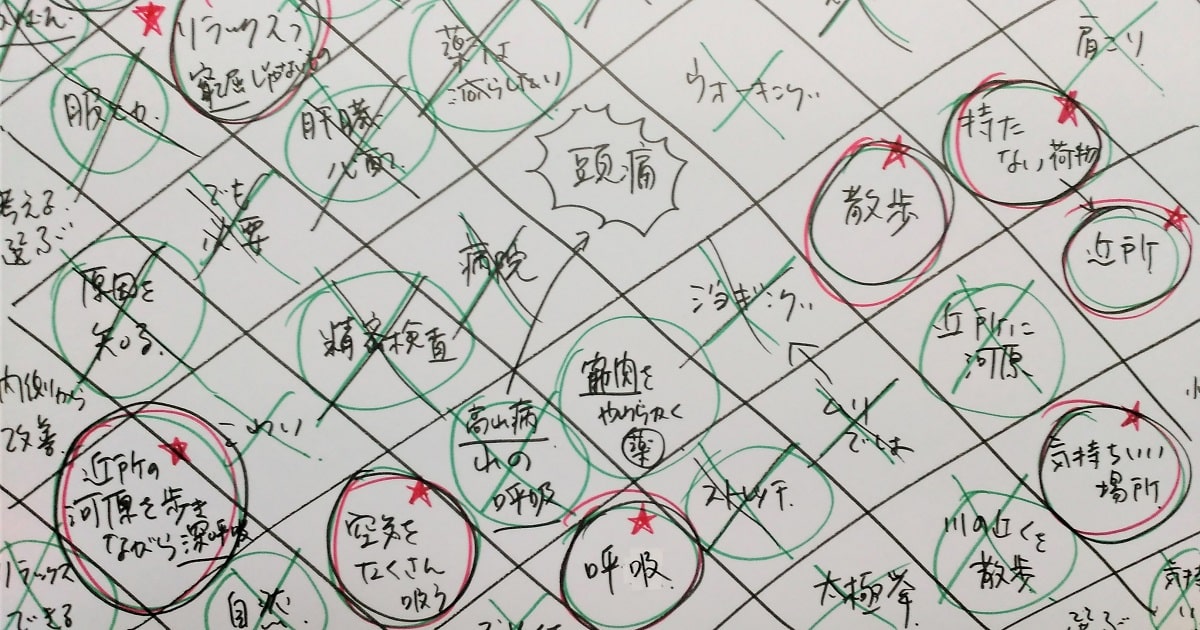 リラックスう
窮屈じゃないもの
服とか
肝臓
心臓?
薬には
たよらしたくない
ウォーキング
肩こり
頭痛
散歩
持た
ない荷物
近所
考える
選ぶ
でも
必要
原因を
知る
病院
精密検査
ジョギング
近所に
河原
筋肉を
やわらかく
薬
内側から
改善
こわい
高山病
山の
呼吸
ムリ
では
気持ちいい
場所
近所の
河原を歩き
ながら深呼吸
空気を
たくさん
吸う
呼吸
ストレッチ
川の近くを
散歩
リラックス
できる
自然
太極拳
選ぶ